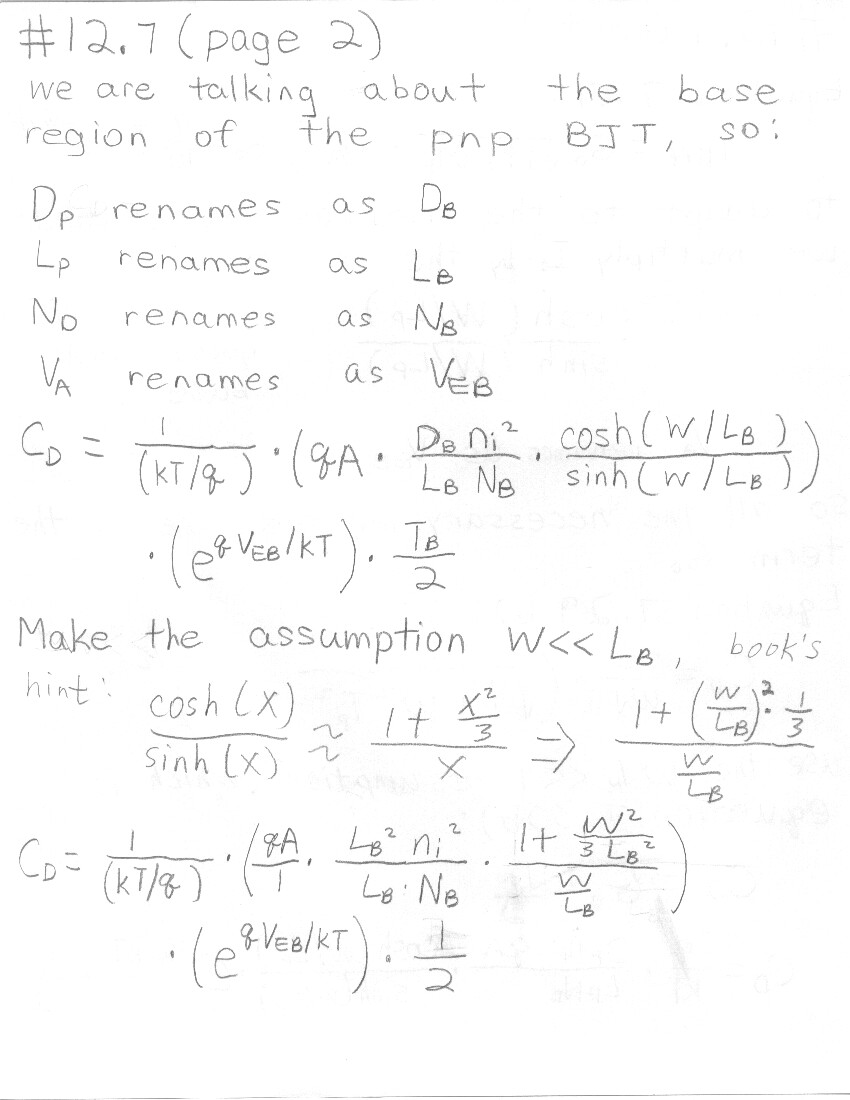 #12.7 (page 2)
we are talking about the base
region of the pnp BJT, so:
Dp renames as DB
Lp renames as LB
ND renames as NB
VA renames as VEB
CD = 1/(kT/q) · (qA · DB ni²/LB NB · cosh(W/LB)/sinh(W/LB))
· (e^qVEB/kT) · TB/2
Make the assumption W<< LB, book's
hint: cosh(x)/sinh(x) ≈ (1 + x²/3)/x ⇒ (1 + (W/LB)² · 1/3)/(W/LB)
CD = 1/(kT/q) · (qA/1 · LB² ni²/LB · NB · (1 + W²/3 LB²)/(W/LB))
· (e^qVEB/kT) · 1/2